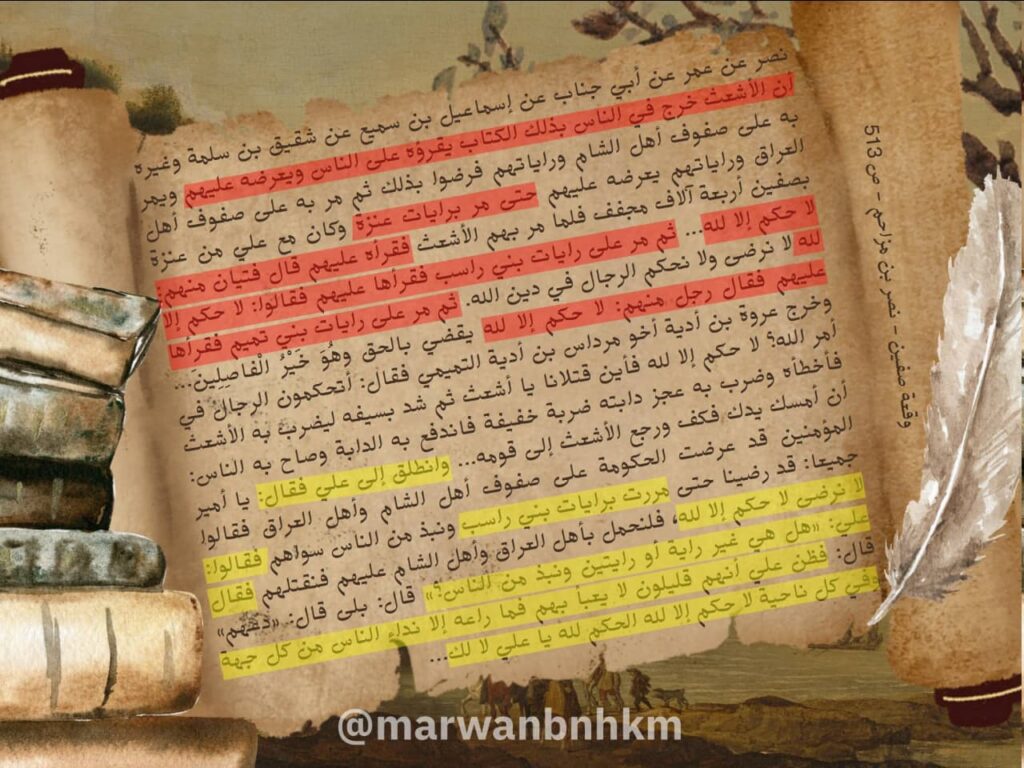 نصر عن عمر عن أبي جناب عن إسماعيل بن سميع عن شقيق بن سلمة وغيره
أن الأشعث خرج في الناس بذلك الكتاب يقرؤه على الناس ويعرضه عليهم ويمر
به على صفوف أهل الشام وراياتهم فرضوا بذلك ثم مر به على صفوف أهل
العراق وراياتهم يعرضه عليهم حتى مر برايات عنزة وكان مع علي من عنزة
بصفين أربعة آلاف مجفف فلما مر بهم الأشعث فقرأه عليهم قال فتيان منهم:
لا حكم إلا لله... ثم مر على رايات بني راسب فقرأها عليهم فقالوا: لا حكم إلا
لله لا نرضى ولا نحكم الرجال في دين الله. ثم مر على رايات بني تميم فقرأها
عليهم فقال رجل منهم: لا حكم إلا لله يقضي بالحق وهُوَ خَيْرُ الْفاصِلِين...
وخرج عروة بن أدية أخو مرداس بن أدية التميمي فقال: أتحكمون الرجال في
أمر الله؟ لا حكم إلا لله فأين قتلانا يا أشعث ثم شد بسيفه ليضرب به الأشعث
فأخطأه وضرب به عجز دابته ضربة خفيفة فاندفع به الدابة وصاح به الناس:
أن أمسك يدك فكف ورجع الأشعث إلى قومه... وانطلق إلى علي فقال: يا أمير
المؤمنين قد عرضت الحكومة على صفوف أهل الشام وأهل العراق فقالوا
جميعا: قد رضينا حتى مررت برايات بني راسب ونبذ من الناس سواهم فقالوا:
لا نرضى لا حكم إلا لله، فلنحمل بأهل العراق وأهل الشام عليهم فنقتلهم فقال
علي: «هل هي غير راية أو رايتين ونبذ من الناس؟» قال: بلى قال: «دعهم»
قال: فظن علي أنهم قليلون لا يعبأ بهم فما راعه إلا نداء الناس من كل جهة
وفي كل ناحية لا حكم إلا لله الحكم لله يا علي لا لك...
وقعة صفين - نصر بن مزاحم - ص 513
@marwanbnhkm